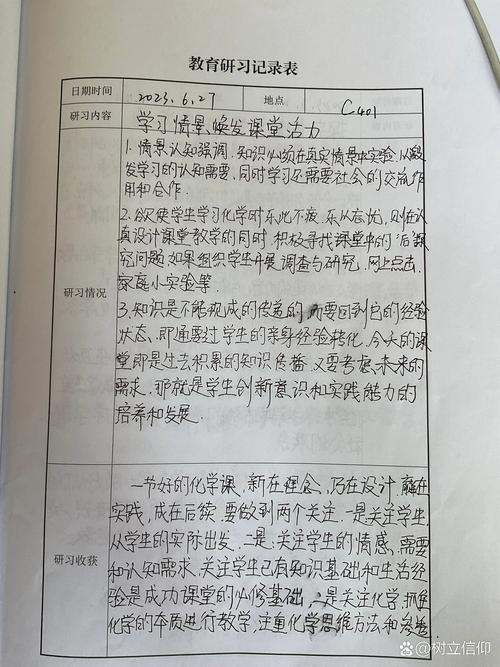 教育研习记录表
日期时间 2023.6.27 地点 C401
研习内容 学习情景,焕发课堂活力
研习情况
1.情景认知强调,知识必须在真实情景中实验,从激
发学习的认知需要,同时学习还需要社会的交流作
用和合作.
2.欲使学生学习化学时乐此不疲、乐从忘忧,则在认
真设计课堂教学的同时,积极寻找课堂中的"后"探
究问题,如果组织学生开展调查与研究、网上点击、
家庭小实验等.
3.知识是不能现成的传递的,而要回到它的经验
状态、即通要过学生的亲身经验转化,今天的课
堂即是过去积累的知识传播,又要考虑未来的
需求,那就是学生创新意识和实践能力的
培养和发展.
研习收获
一节好的化学课,新在理念,巧在设计,赢在
实践,成在后续.要做到两个关注.一是关注学生,
从学生的实际出发,二是,关注学生的情感,需要
和认知需求,关注学生已有知识基础和生活经
验是成功课堂的必修基础,二是关注化学,抓住
化学的本质进行教学,注重化学思维方法和
@树立信仰